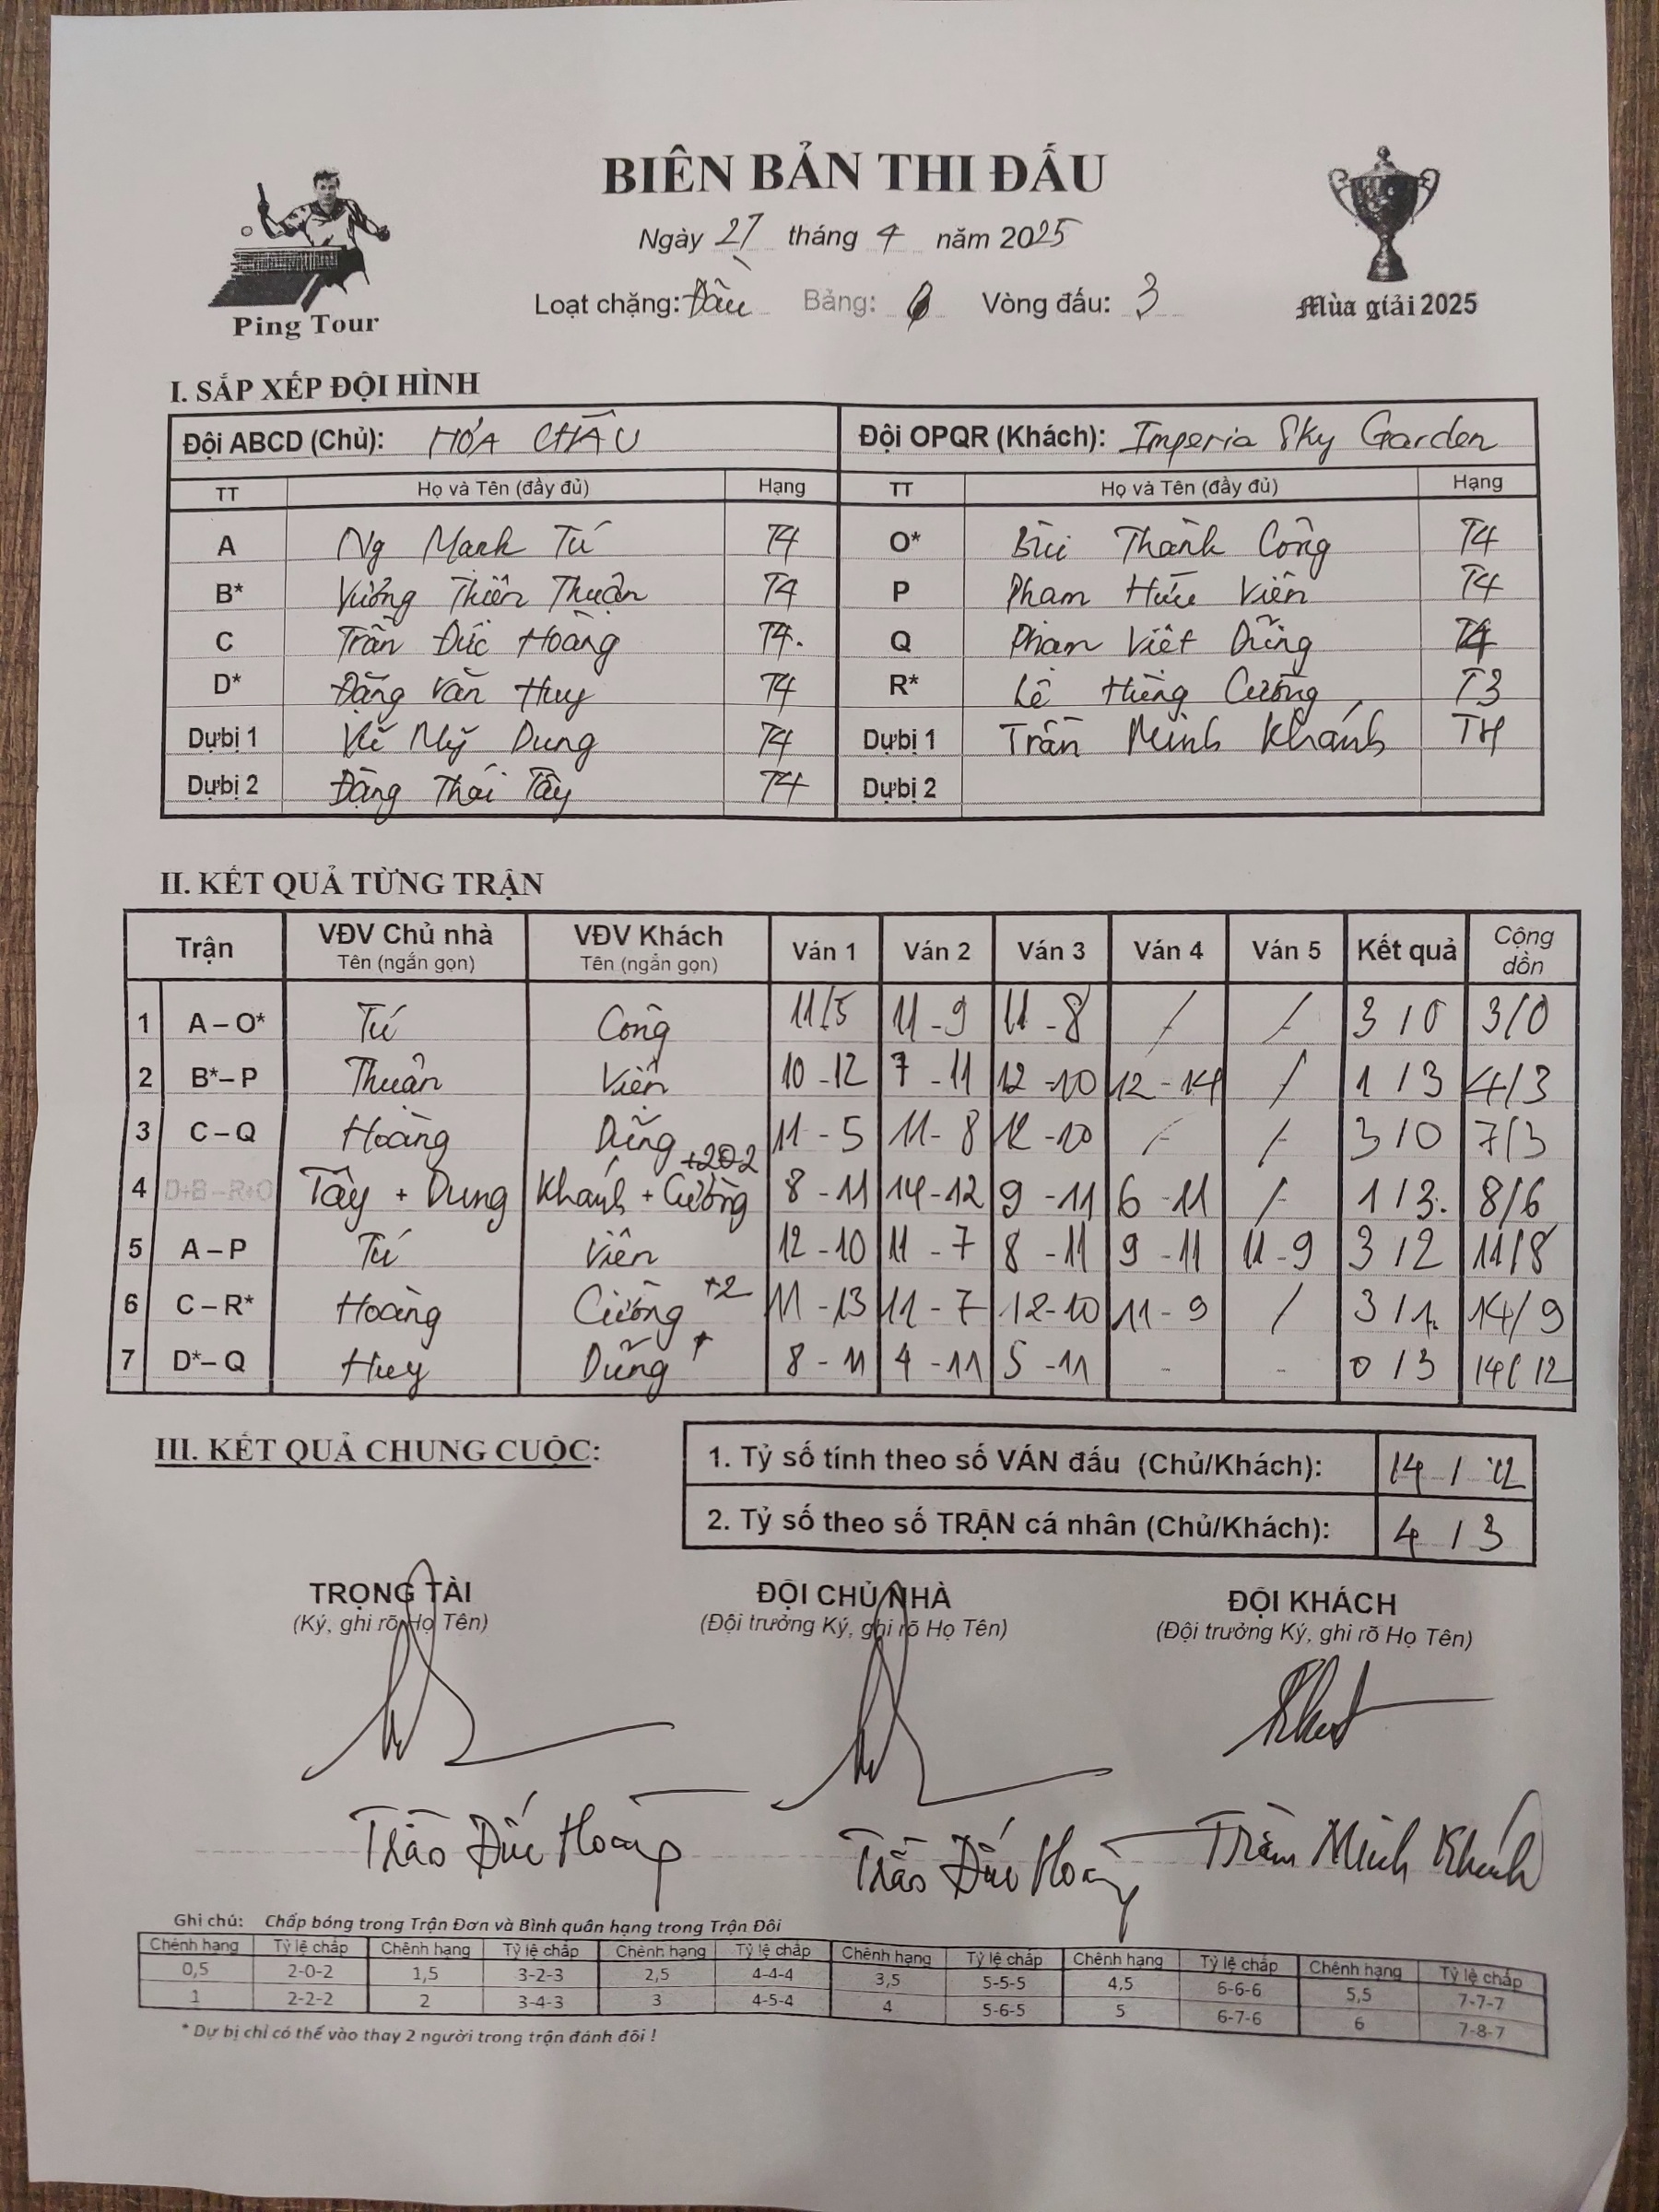 BIÊN BẢN THI ĐẤU
Ngày 27 tháng 4 năm 2025
Loạt chặng: Đầu Bảng: Vòng đấu: 3
Ping Tour
Mùa giải 2025
I. SẮP XẾP ĐỘI HÌNH
Đội ABCD (Chủ): HÓA CHÂU Đội OPQR (Khách): Imperia Sky Garden
TT Họ và Tên (đầy đủ) Hạng TT Họ và Tên (đầy đủ) Hạng
A Ng Mạnh Tú T4 O* Bùi Thành Công T4
B* Vương Thiên Thuận T4 P Phạm Hữu Viên T4
C Trần Đức Hoàng T4. Q Phạm Viết Dũng T4
D* Đặng Văn Huy T4 R* Lê Hùng Cường T3
Dự bị 1 Mỹ Dung T4 Dự bị 1 Trần Minh Khánh T4
Dự bị 2 Đặng Thái Tây T4 Dự bị 2
II. KẾT QUẢ TỪNG TRẬN
Trận VĐV Chủ nhà VĐV Khách Ván 1 Ván 2 Ván 3 Ván 4 Ván 5 Kết quả Cộng dồn
Tên (ngắn gọn) Tên (ngắn gọn)
1 A – O* Tú Công 11/5 11-9 11-8 / / 3 / 0 3/0
2 B*– P Thuận Viên 10-12 7-11 12-10 12-14 / 1 / 3 4/3
3 C – Q Hoàng Dũng 11-5 11-8 12-10 / / 3 / 0 7/3
4 D+B – R+O Tây + Dung Khánh + Cường +202 8-11 14-12 9-11 6-11 / 1 / 3. 8/6
5 A – P Tú Viên 12-10 11-7 8-11 9-11 11-9 3 / 2 11/8
6 C – R* Hoàng Cường +2 11-13 11-7 12-10 11-9 / 3 / 1. 14/9
7 D*– Q Huy Dũng 8-11 4-11 5-11 - - 0 / 3 14/12
III. KẾT QUẢ CHUNG CUỘC:
1. Tỷ số tính theo số VÁN đấu (Chủ/Khách): 14 / 12
2. Tỷ số theo số TRẬN cá nhân (Chủ/Khách): 4 / 3
TRỌNG TÀI ĐỘI CHỦ NHÀ ĐỘI KHÁCH
(Ký, ghi rõ Họ Tên) (Đội trưởng Ký, ghi rõ Họ Tên) (Đội trưởng Ký, ghi rõ Họ Tên)
Trần Đức Hoàng Trần Đức Hoàng Trần Minh Khánh
Ghi chú: Chấp bóng trong Trận Đơn và Bình quân hạng trong Trận Đôi
Chênh hạng Tỷ lệ chấp Chênh hạng Tỷ lệ chấp Chênh hạng Tỷ lệ chấp Chênh hạng Tỷ lệ chấp Chênh hạng Tỷ lệ chấp Chênh hạng Tỷ lệ chấp
0,5 2-0-2 1,5 3-2-3 2,5 4-4-4 3,5 5-5-5 4,5 6-6-6 5,5 7-7-7
1 2-2-2 2 3-4-3 3 4-5-4 4 5-6-5 5 6-7-6 6 7-8-7
* Dự bị chỉ có thể vào thay 2 người trong trận đánh đôi !